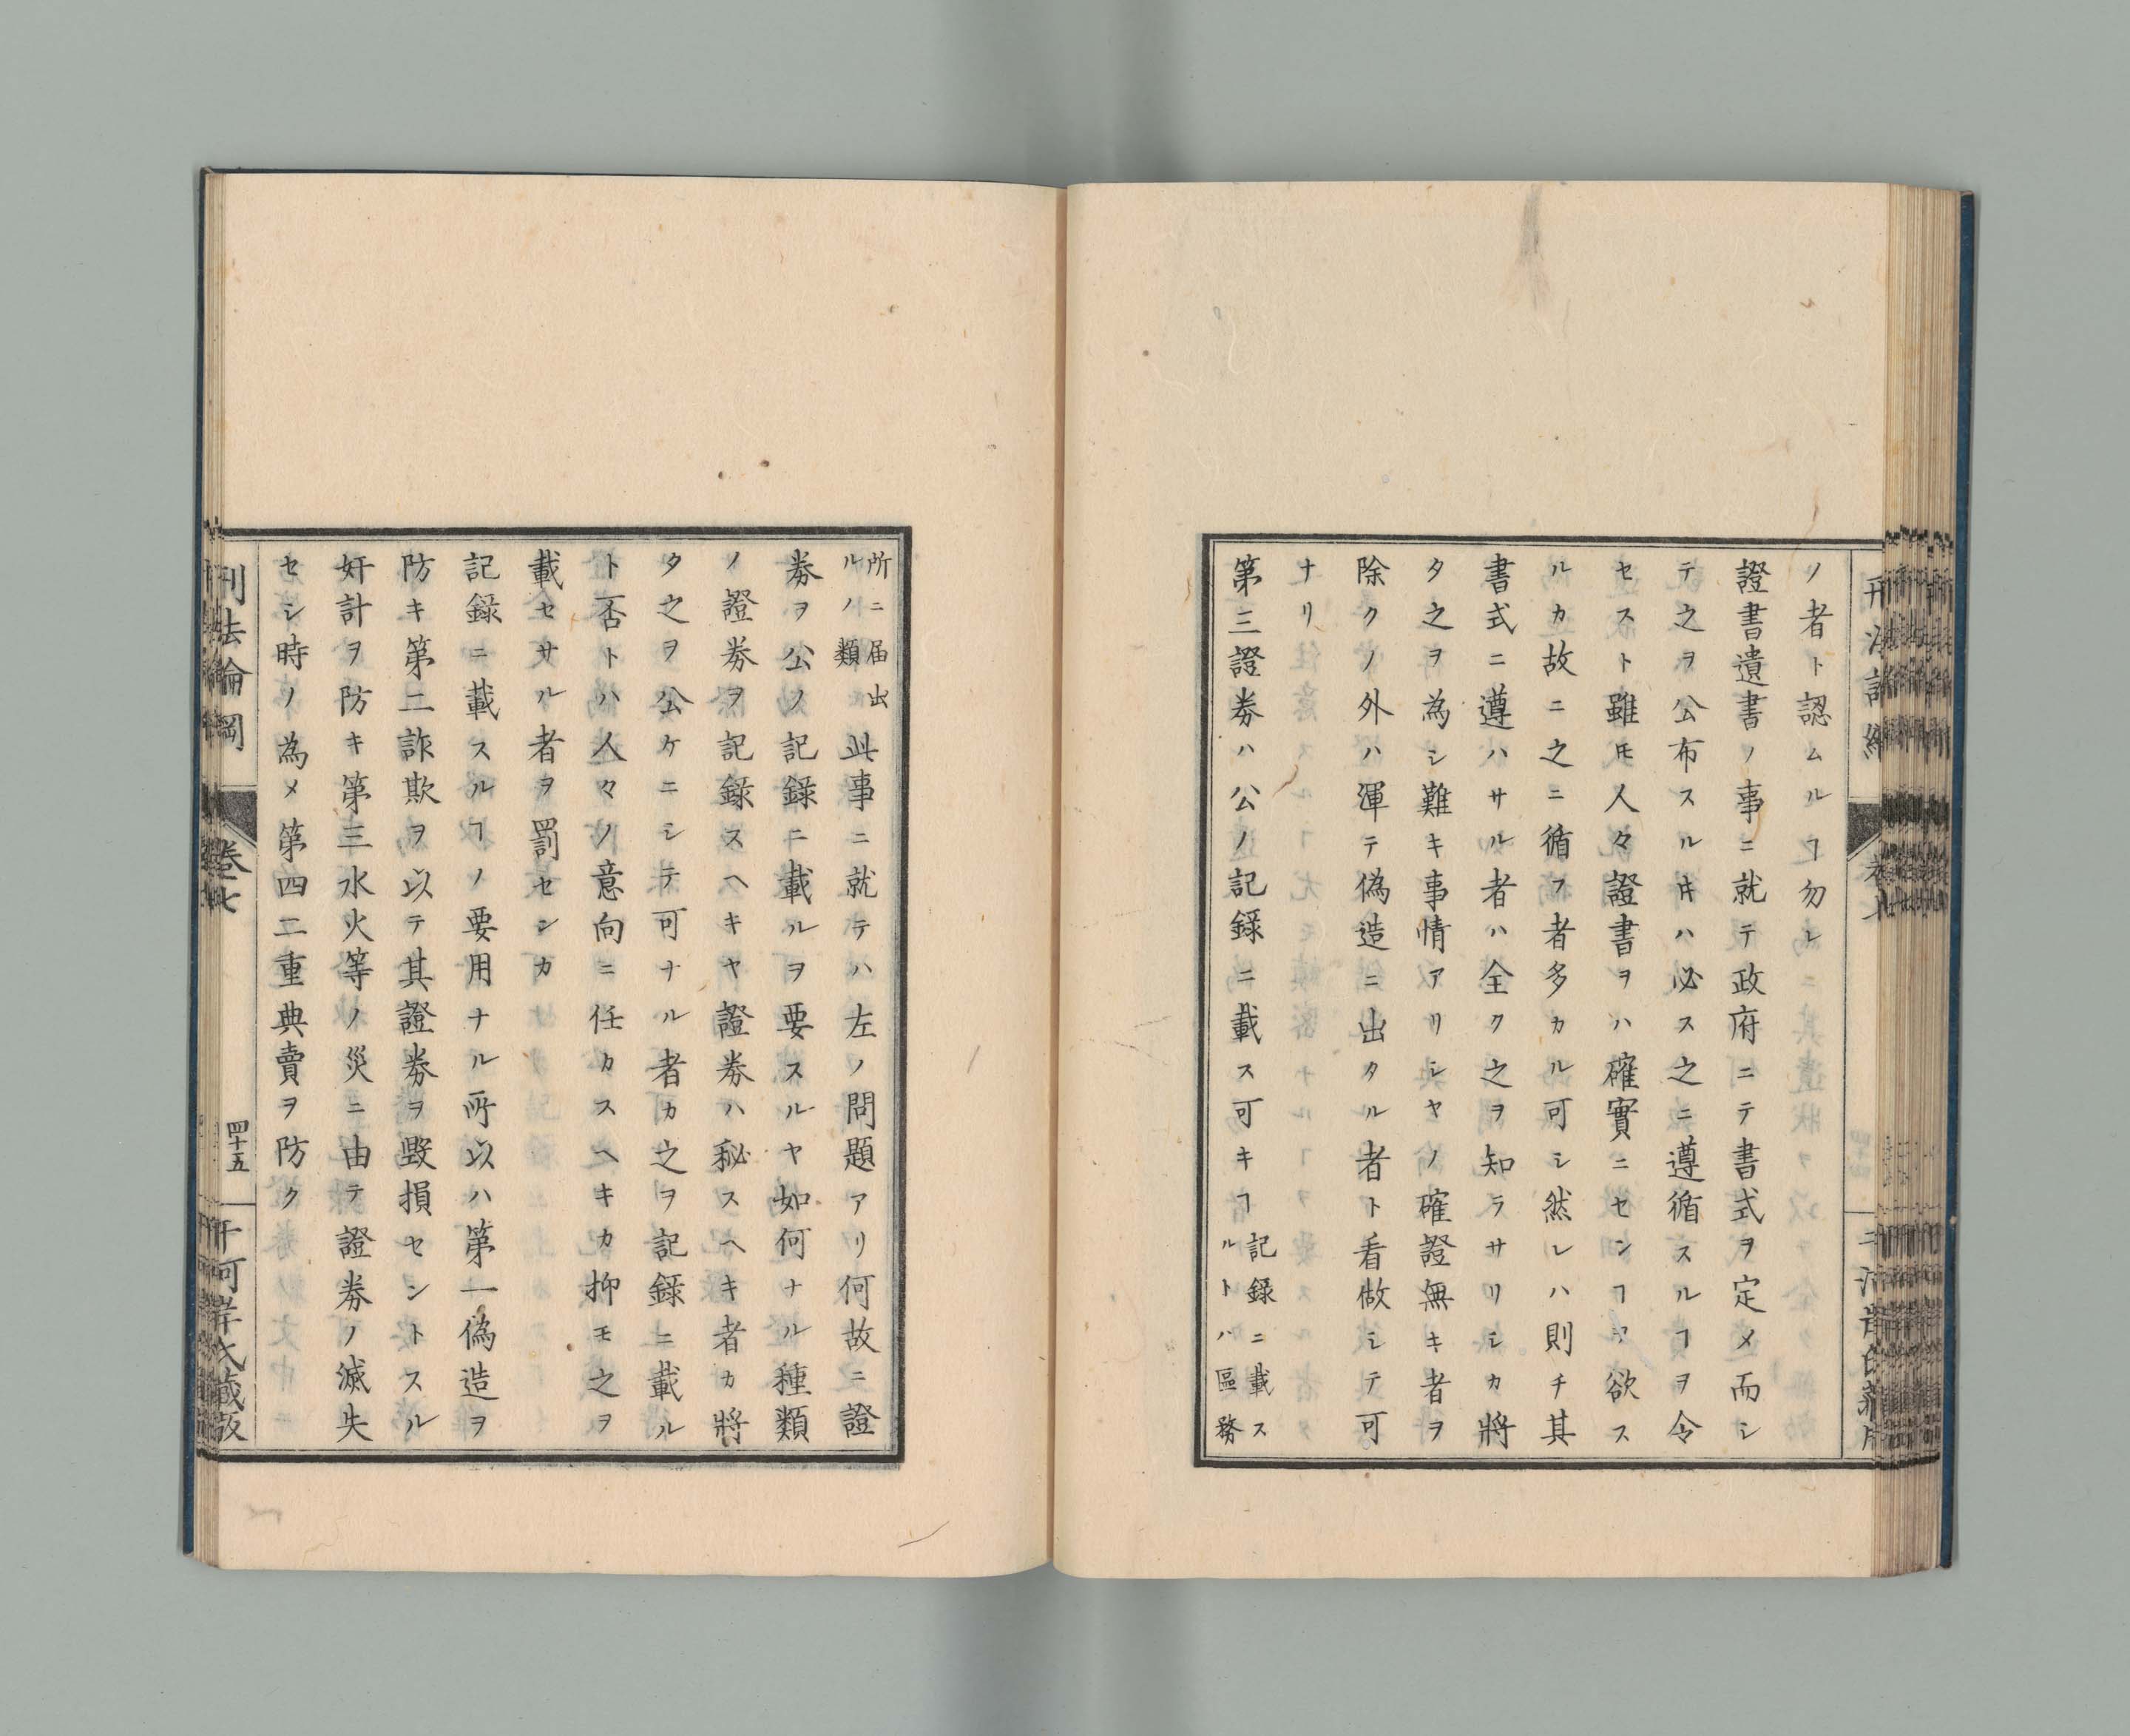 ノ者ト認ムルヿ勿レ
證書遺書ノ事ニ就テ政府ニテ書式ヲ定メ而シ
テ之ヲ公布スルキハ必ス之ニ遵循スルヿヲ令
セスト雖モ人々證書ヲハ確實ニセンヿヲ欲ス
ルカ故ニ之ニ循フ者多カル可シ然レハ則チ其
書式ニ遵ハサル者ハ全ク之ヲ知ラサリシカ將
タ之ヲ為シ難キ事情アリシヤノ確證無キ者ヲ
除クノ外ハ渾テ偽造ニ出タル者ト看做シテ可
ナリ
第三證券ハ公ノ記録ニ載ス可キヿ
記録ニ載ス
ルトハ區務
所ニ届出
ルノ類
此事ニ就テハ左ノ問題アリ何故ニ證
券ヲ公ノ記録ニ載ルヲ要スルヤ如何ナル種類
ノ證券ヲ記録スヘキヤ證券ハ秘スヘキ者カ將
タ之ヲ公ケニシテ可ナル者カ之ヲ記録ニ載ル
ト否トハ人々ノ意向ニ任カスヘキカ抑モ之ヲ
載セサル者ヲ罰センカ
記録ニ載スルヿノ要用ナル所以ハ第一偽造ヲ
防キ第二詐欺ヲ以テ其證券ヲ毀損セントスル
奸計ヲ防キ第三水火等ノ災ニ由テ證券ノ滅失
セシ時ノ為メ第四二重典賣ヲ防ク
刑法論綱
卷七
四十五
何
氏藏版